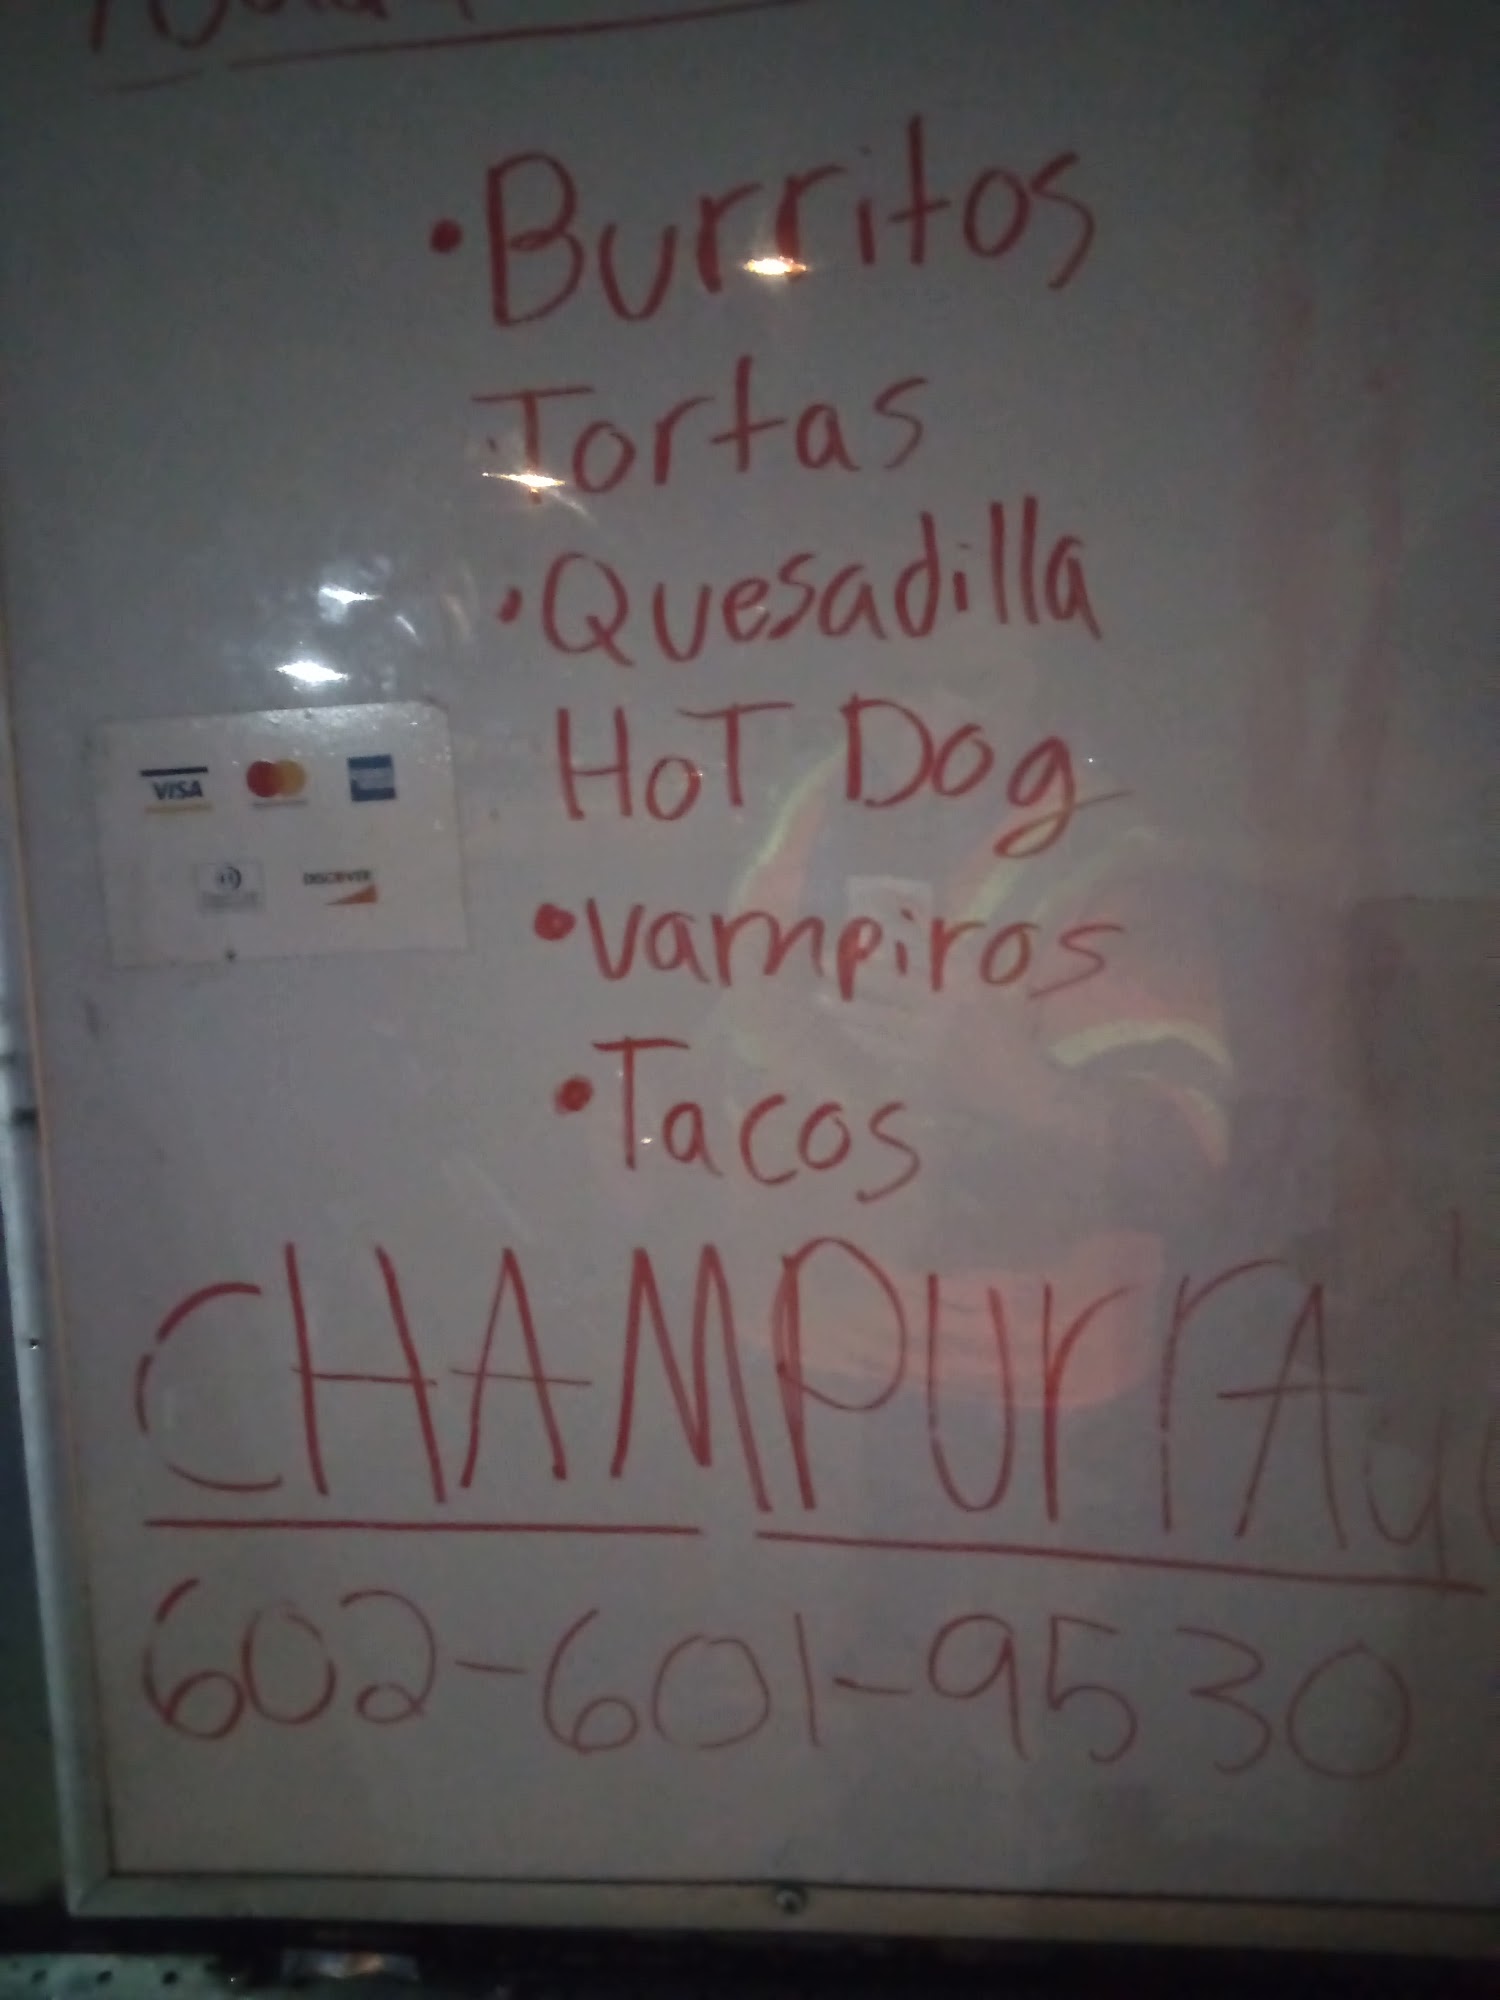 • Burritos
Tortas
• Quesadilla
HoT Dog
VISA
DISCOVER
• Vampiros
• Tacos
CHAMPUrrA
602-601-9530